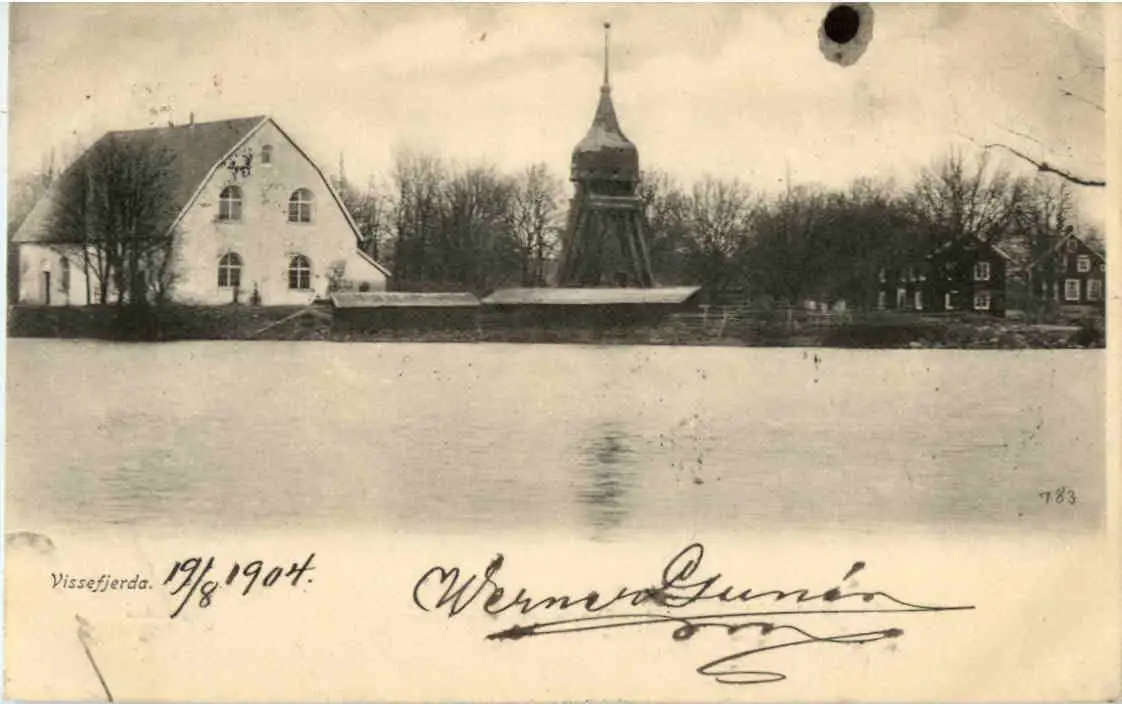 783
Vissefjerda. 19/8 1904.
Werner Gunér